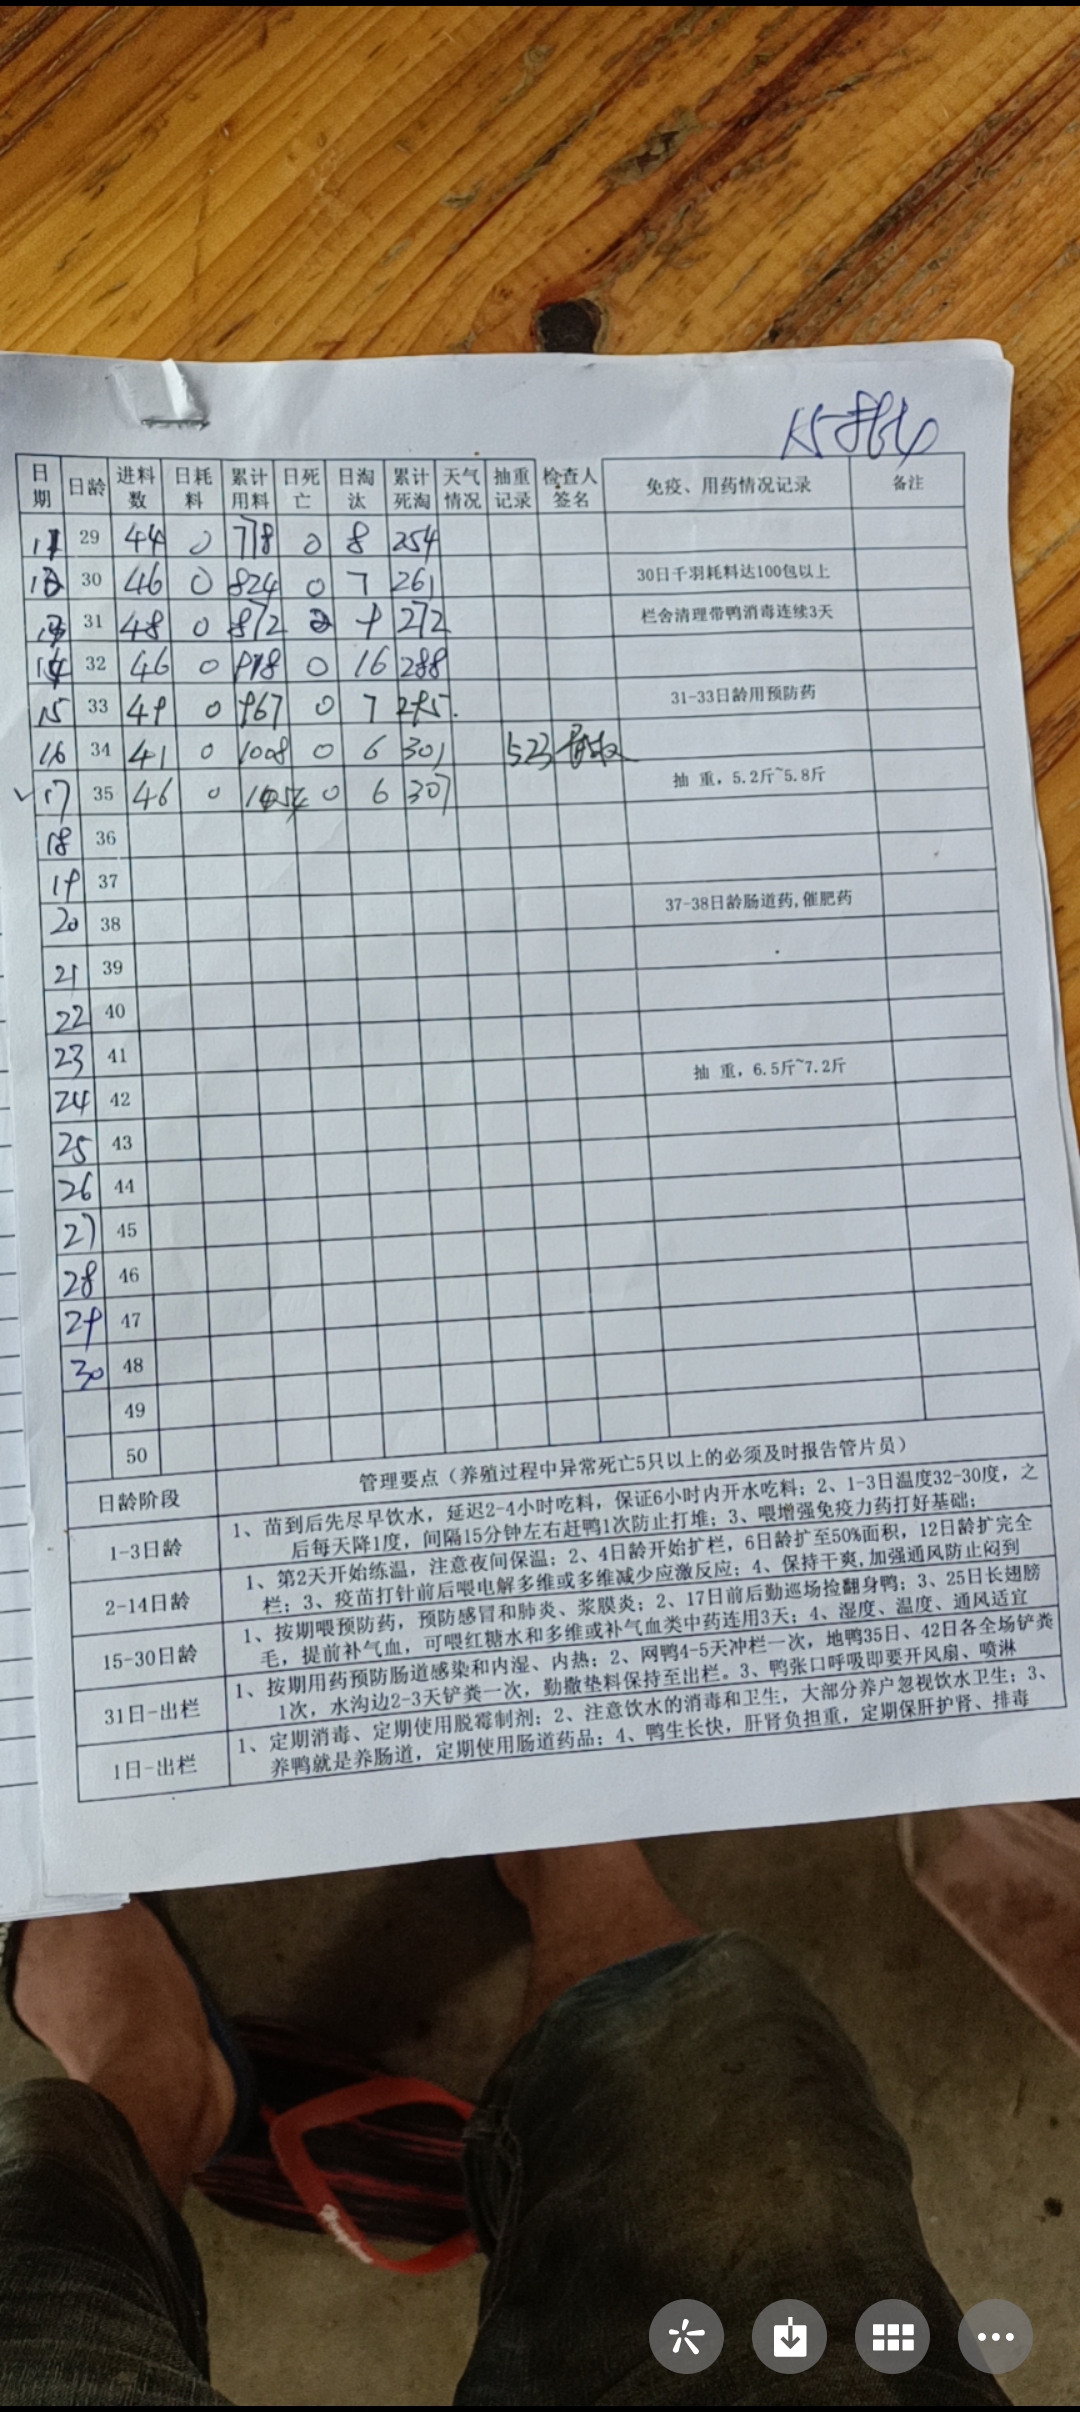 日期 日龄 进料数 日耗料 累计用料 日死亡 日淘汰 累计死淘 天气情况 抽重记录 检查人签名 免疫、用药情况记录 备注
11 29 44 0 778 0 8 254
12 30 46 0 824 0 7 261 30日千羽耗料达100包以上
13 31 48 0 872 2 9 272 栏舍清理带鸭消毒连续3天
14 32 46 0 918 0 16 288
15 33 49 0 967 0 7 295. 31-33日龄用预防药
16 34 41 0 1008 0 6 301 523
✓17 35 46 0 1054 0 6 307 抽 重，5.2斤~5.8斤
18 36
19 37
20 38 37-38日龄肠道药,催肥药
21 39
22 40
23 41
24 42 抽 重，6.5斤~7.2斤
25 43
26 44
27 45
28 46
29 47
30 48
49
50
日龄阶段 管理要点（养殖过程中异常死亡5只以上的必须及时报告管片员）
1-3日龄 1、苗到后先尽早饮水，延迟2-4小时吃料，保证6小时内开水吃料；2、1-3日温度32-30度，之
后每天降1度，间隔15分钟左右赶鸭1次防止打堆；3、喂增强免疫力药打好基础；
2-14日龄 1、第2天开始练温，注意夜间保温；2、4日龄开始扩栏，6日龄扩至50%面积，12日龄扩完全
栏；3、疫苗打针前后喂电解多维或多维减少应激反应；4、保持干爽,加强通风防止闷到
15-30日龄 1、按期喂预防药，预防感冒和肺炎、浆膜炎；2、17日前后勤巡场捡翻身鸭；3、25日长翅膀
毛，提前补气血，可喂红糖水和多维或补气血类中药连用3天；4、湿度、温度、通风适宜
31日-出栏 1、按期用药预防肠道感染和内湿、内热；2、网鸭4-5天冲栏一次，地鸭35日、42日各全场铲粪
1次，水沟边2-3天铲粪一次，勤撒垫料保持至出栏。3、鸭张口呼吸即要开风扇、喷淋
1日-出栏 1、定期消毒、定期使用脱霉制剂；2、注意饮水的消毒和卫生，大部分养户忽视饮水卫生；3、
养鸭就是养肠道，定期使用肠道药品；4、鸭生长快，肝肾负担重，定期保肝护肾、排毒